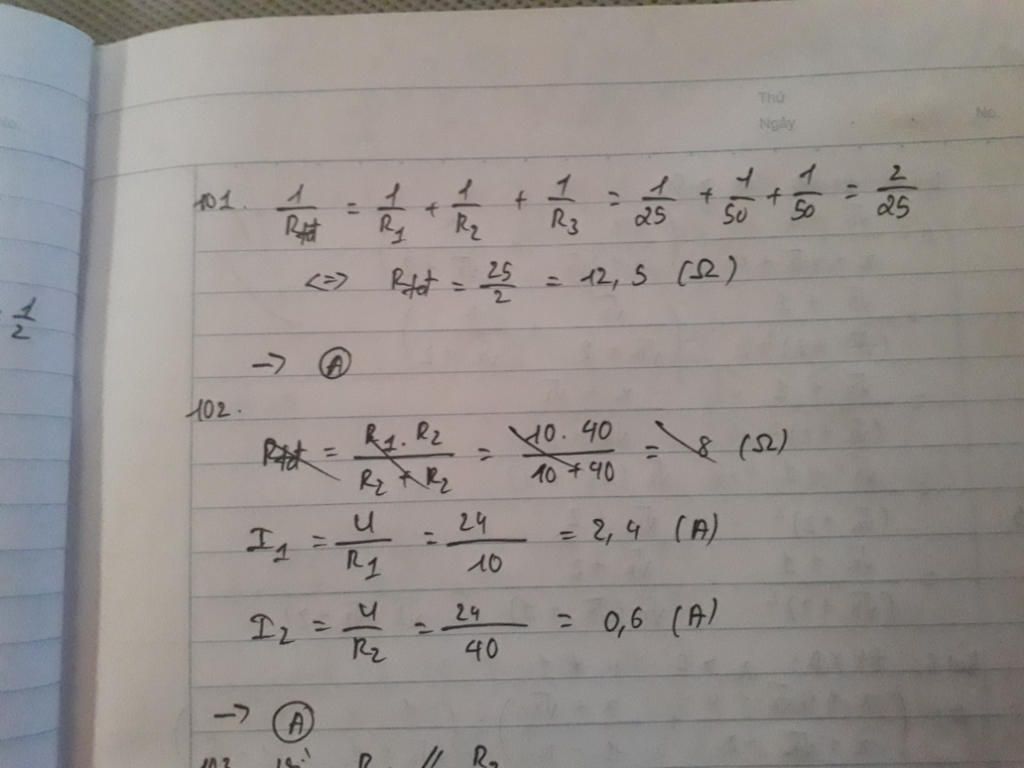 Thứ
Ngày
No.
101. 1/R_tđ = 1/R_1 + 1/R_2 + 1/R_3 = 1/25 + 1/50 + 1/50 = 2/25
<=> R_tđ = 25/2 = 12,5 (Ω)
→ Ⓐ
1/2
102.
R_tđ = R_1.R_2/R_2+R_2 = 10.40/10+40 = 8 (Ω)
I_1 = U/R_1 = 24/10 = 2,4 (A)
I_2 = U/R_2 = 24/40 = 0,6 (A)
→ Ⓐ
103. Vì R // R